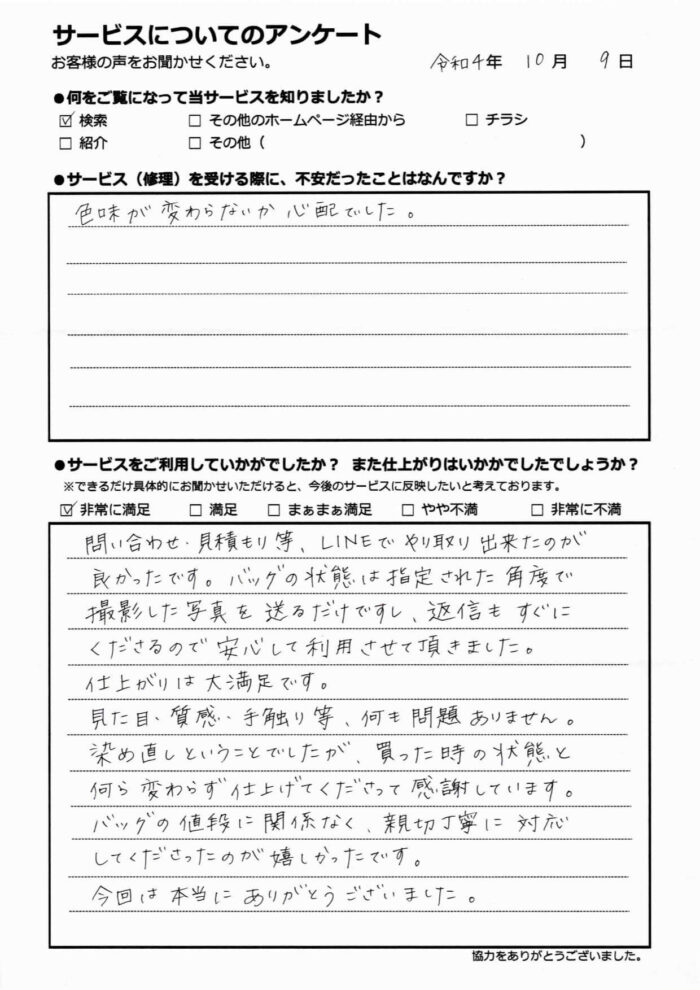 サービスについてのアンケート
お客様の声をお聞かせください。
令和4年 10月 9日
●何をご覧になって当サービスを知りましたか？
☑ 検索 □ その他のホームページ経由から □ チラシ
□ 紹介 □ その他（ ）
●サービス（修理）を受ける際に、不安だったことはなんですか？
色味が変わらないか心配でした。
●サービスをご利用していかがでしたか？ また仕上がりはいかかでしたでしょうか？
※できるだけ具体的にお聞かせいただけると、今後のサービスに反映したいと考えております。
☑ 非常に満足 □ 満足 □ まぁまぁ満足 □ やや不満 □ 非常に不満
問い合わせ・見積もり等、LINEでやり取り出来たのが
良かったです。バッグの状態は指定された角度で
撮影した写真を送るだけですし、返信もすぐに
くださるので安心して利用させて頂きました。
仕上がりは大満足です。
見た目・質感・手触り等、何も問題ありません。
染め直しということでしたが、買った時の状態と
何ら変わらず仕上げてくださって感謝しています。
バッグの値段に関係なく、親切丁寧に対応
してくださったのが嬉しかったです。
今回は本当にありがとうございました。
協力をありがとうございました。